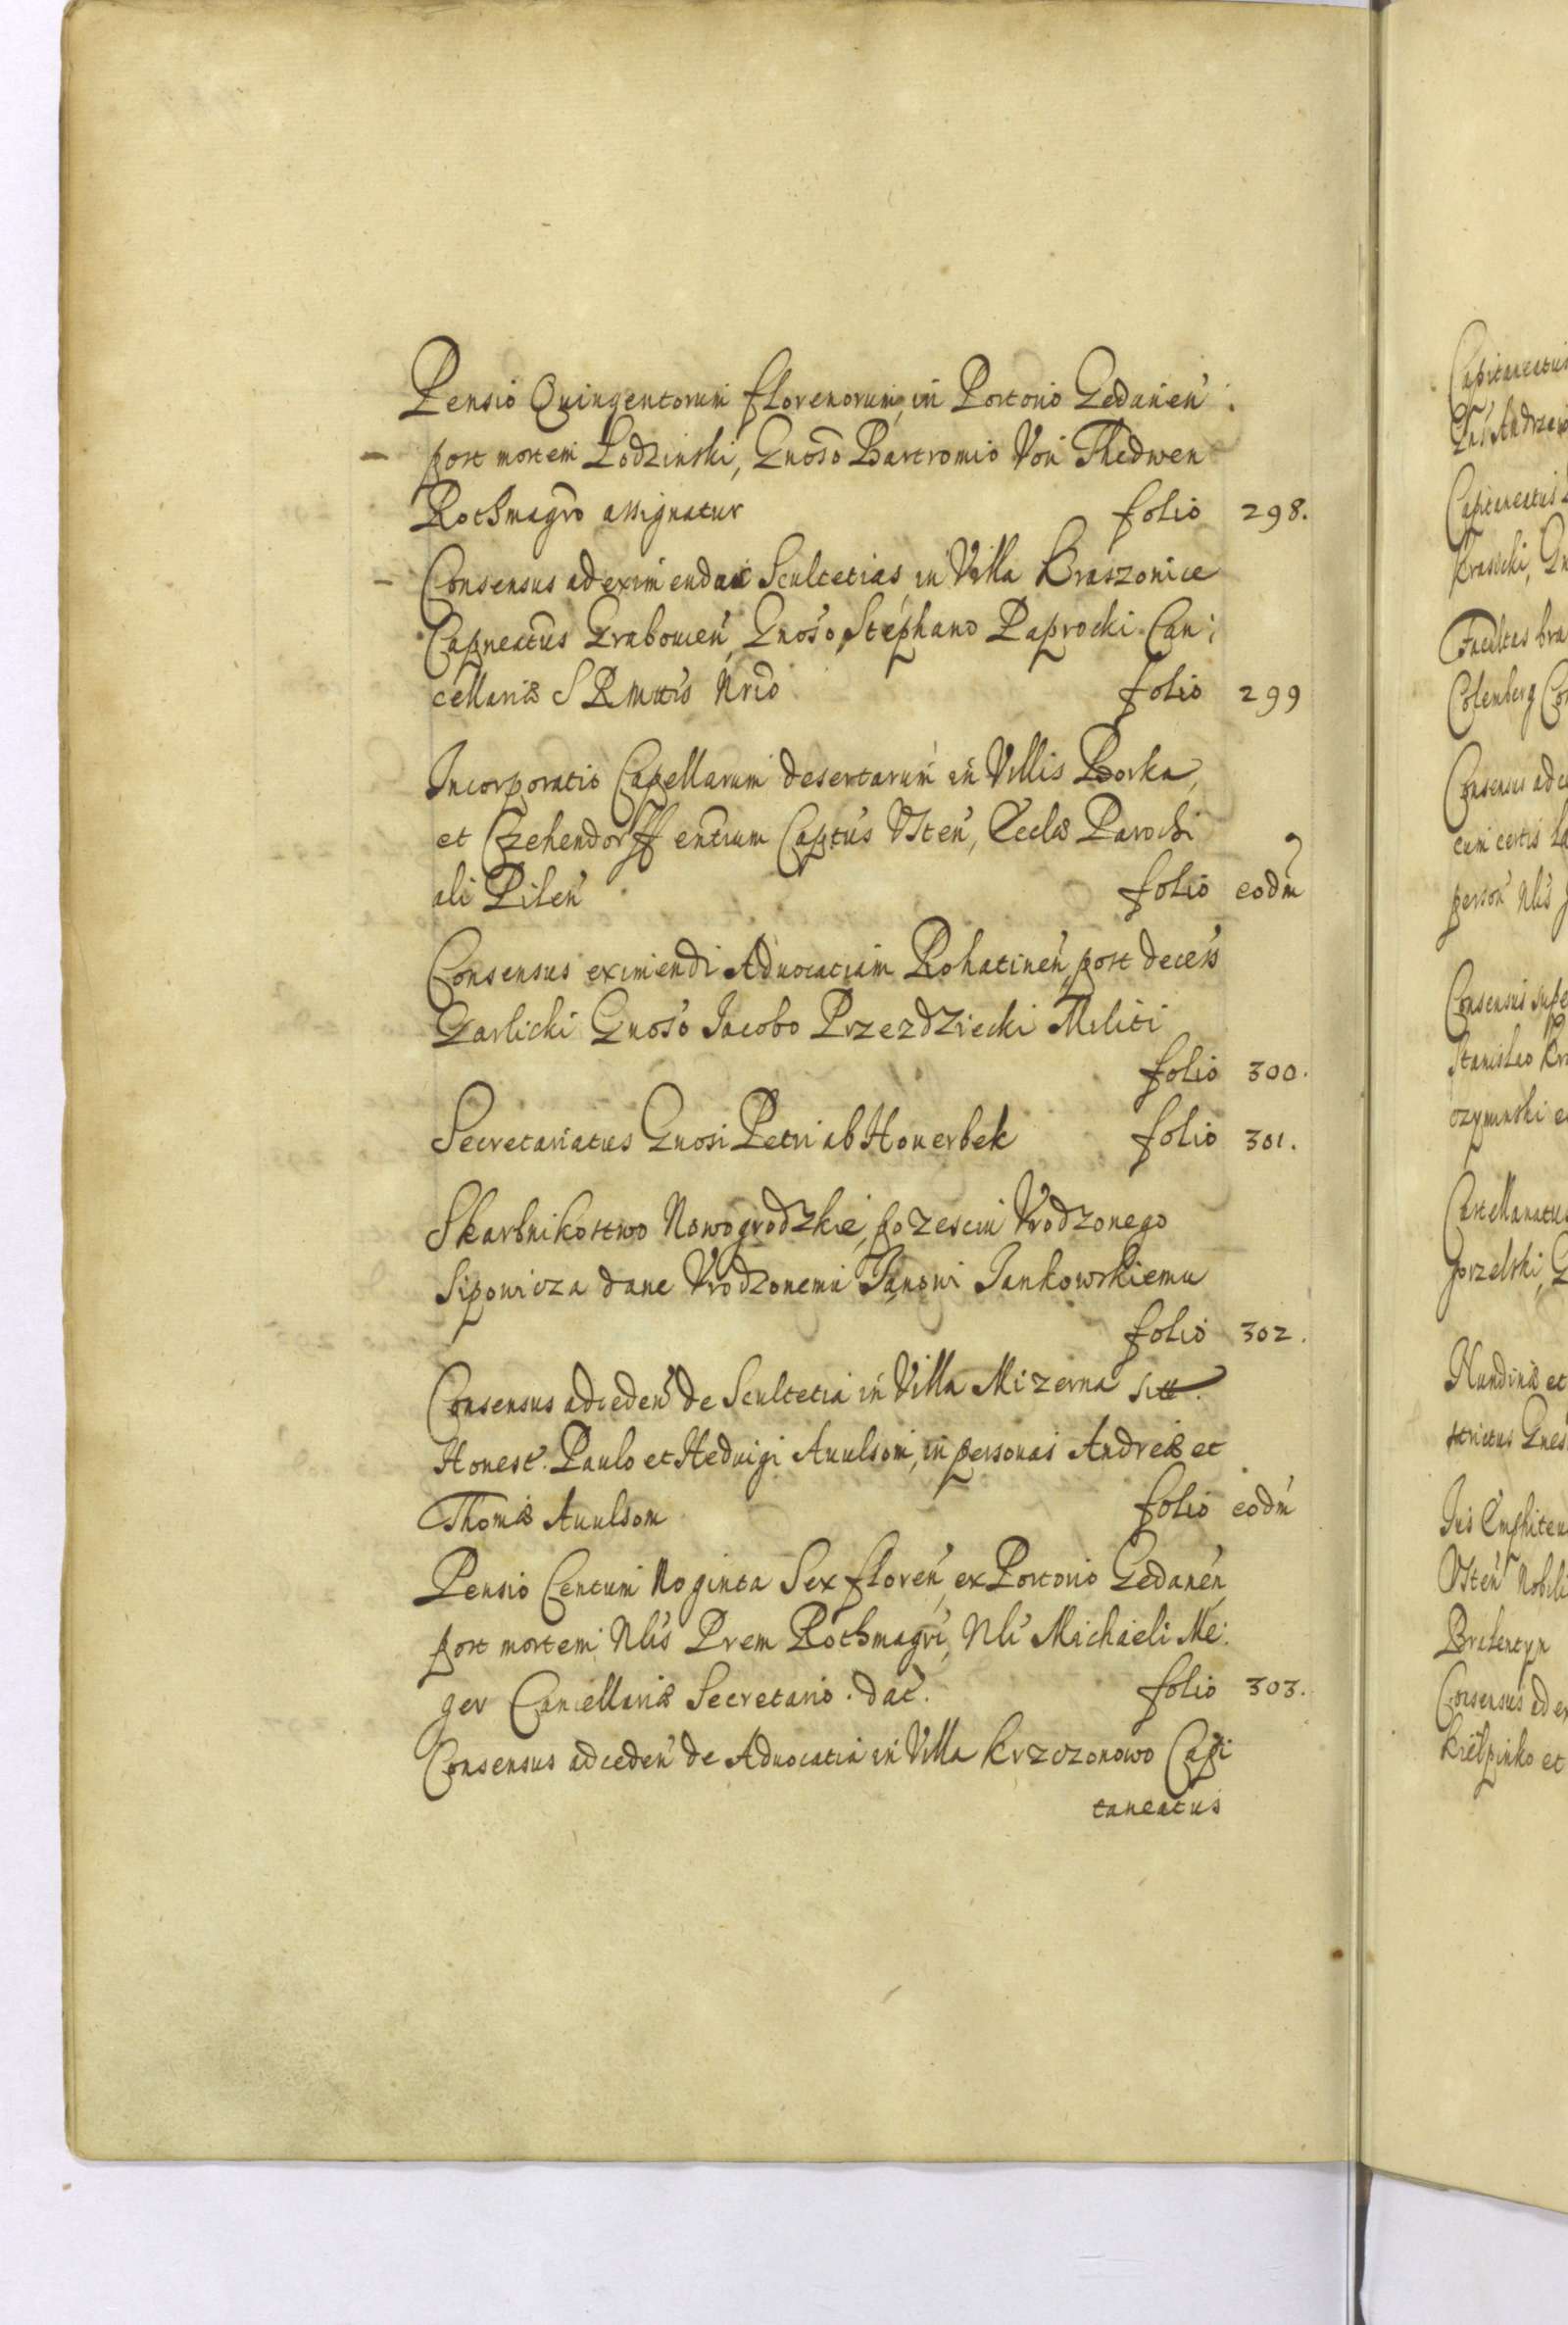 Pensio Quingentorum florenorum, in Portorio Gedanen̄
post mortem Lodzinski, Gnoso Bartromio Von Thedwen
Rothmagro assignatur folio 298.
Consensus ad eximendas Scultetias in Villa Kraszonice
Capneatus Graboven̄, Gnoso Stephano Paprocki Can:
cellariæ S R Mttis Nrio folio 299
Incorporatio Capellarum desertarum in Villis Borka,
et Czehendorff entium Captus Usten̄, Eccłæ Parochi
ali Pilen̄ folio eodm̄
Consensus eximendi Advocatiam Rohatinen̄, post decess
Garlicki Gnoso Jacobo Przezdziecki Militi
folio 300.
Secretariatus Gnosi Petri ab Hoverbek folio 301.
Skarbnikostwo Nowogrodzkie, po zesciu Vrodzonego
Sipowicza dane Vrodzonemu Janowi Jankowskiemu
folio 302.
Consensus ad ceden̄ de Scultetia in Villa Mizerna sitt.
Honest. Paulo et Hedvigi Avulsom, in personas Andreæ et
Thomæ Avulsom folio eodm̄
Pensio Centum Noginta Sex floren̄, ex Portorio Gedanen̄,
post mortem Nlis Prem Rothmagri, Nli Michaeli Me:
ger Cancellariæ Secretario dat. folio 303.
Consensus ad ceden̄ de Advocatia in Villa Krzczonowo Capi
taneatus
Capitaneatus
Andrzei
Capitaneatus
Krasicki,
Facultas
Colenberg
Consensus ad
cum certis
person̄ Nlis
Consensus
Stanislao
Castellanatus
Gorzelski,
Nundinæ et
Jus Emphiteu
Usten̄ Nobili
Consensus ad
Kiełpinko et